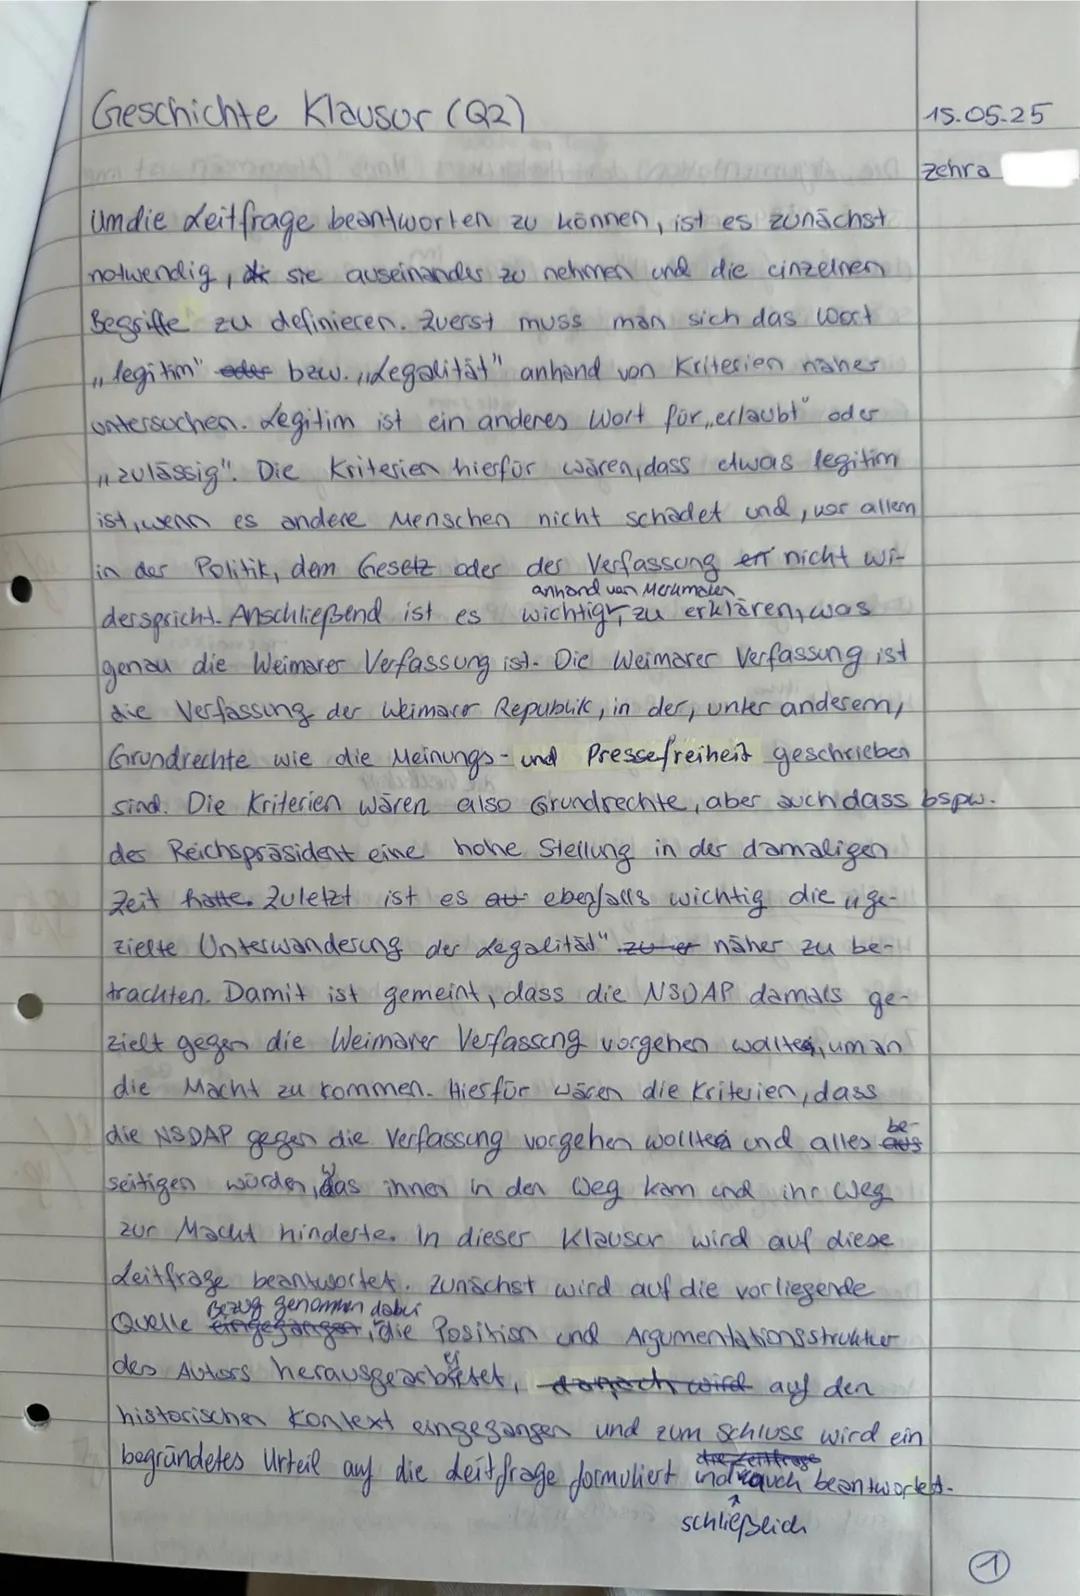 Geschichte Klausur (Q2)
15.05.25
Zehra
Um die Leitfrage beantworten zu können, ist es zunächst
notwendig, sie auseinander zu nehmen und die einzelnen
Begriffe zu definieren. Zuerst muss man sich das Wort
„legitim" oder bzw. „Legalität" anhand von Kriterien näher
untersuchen. Legitim ist ein anderes Wort für „erlaubt" oder
„zulässig". Die Kriterien hierfür wären, dass etwas legitim
ist, wenn es andere Menschen nicht schadet und, vor allem
in der Politik, dem Gesetz oder der Verfassung nicht wi-
anhand von Merkmalen
derspricht. Anschließend ist es wichtig, zu erklären, was
genau die Weimarer Verfassung ist. Die Weimarer Verfassung ist
die Verfassung der Weimarer Republik, in der, unter anderem,
Grundrechte wie die Meinungs- und Pressefreiheit geschrieben
sind. Die Kriterien wären also Grundrechte, aber auch dass bspw.
der Reichspräsident eine hohe Stellung in der damaligen
Zeit hatte. Zuletzt ist es ebenfalls wichtig die „ge-
zielte Unterwanderung der Legalität" näher zu be-
trachten. Damit ist gemeint, dass die NSDAP damals ge-
zielt gegen die Weimarer Verfassung vorgehen wollte, um an
die Macht zu kommen. Hierfür wären die Kriterien, dass
die NSDAP gegen die Verfassung vorgehen wollte und alles be-
seitigen würden, was ihnen in den Weg kam und ihr Weg
zur Macht hinderte. In dieser Klausur wird auf diese
Leitfrage beantwortet. Zunächst wird auf die vorliegende
Bezug genommen dabei
Quelle eingegangen, die Position und Argumentationsstruktur
des Autors herausgearbeitet, danach wird auf den
historischen Kontext eingegangen und zum Schluss wird ein
die Leitfrage
begründetes Urteil auf die Leitfrage formuliert und auch beantwortet.
schließlich
1